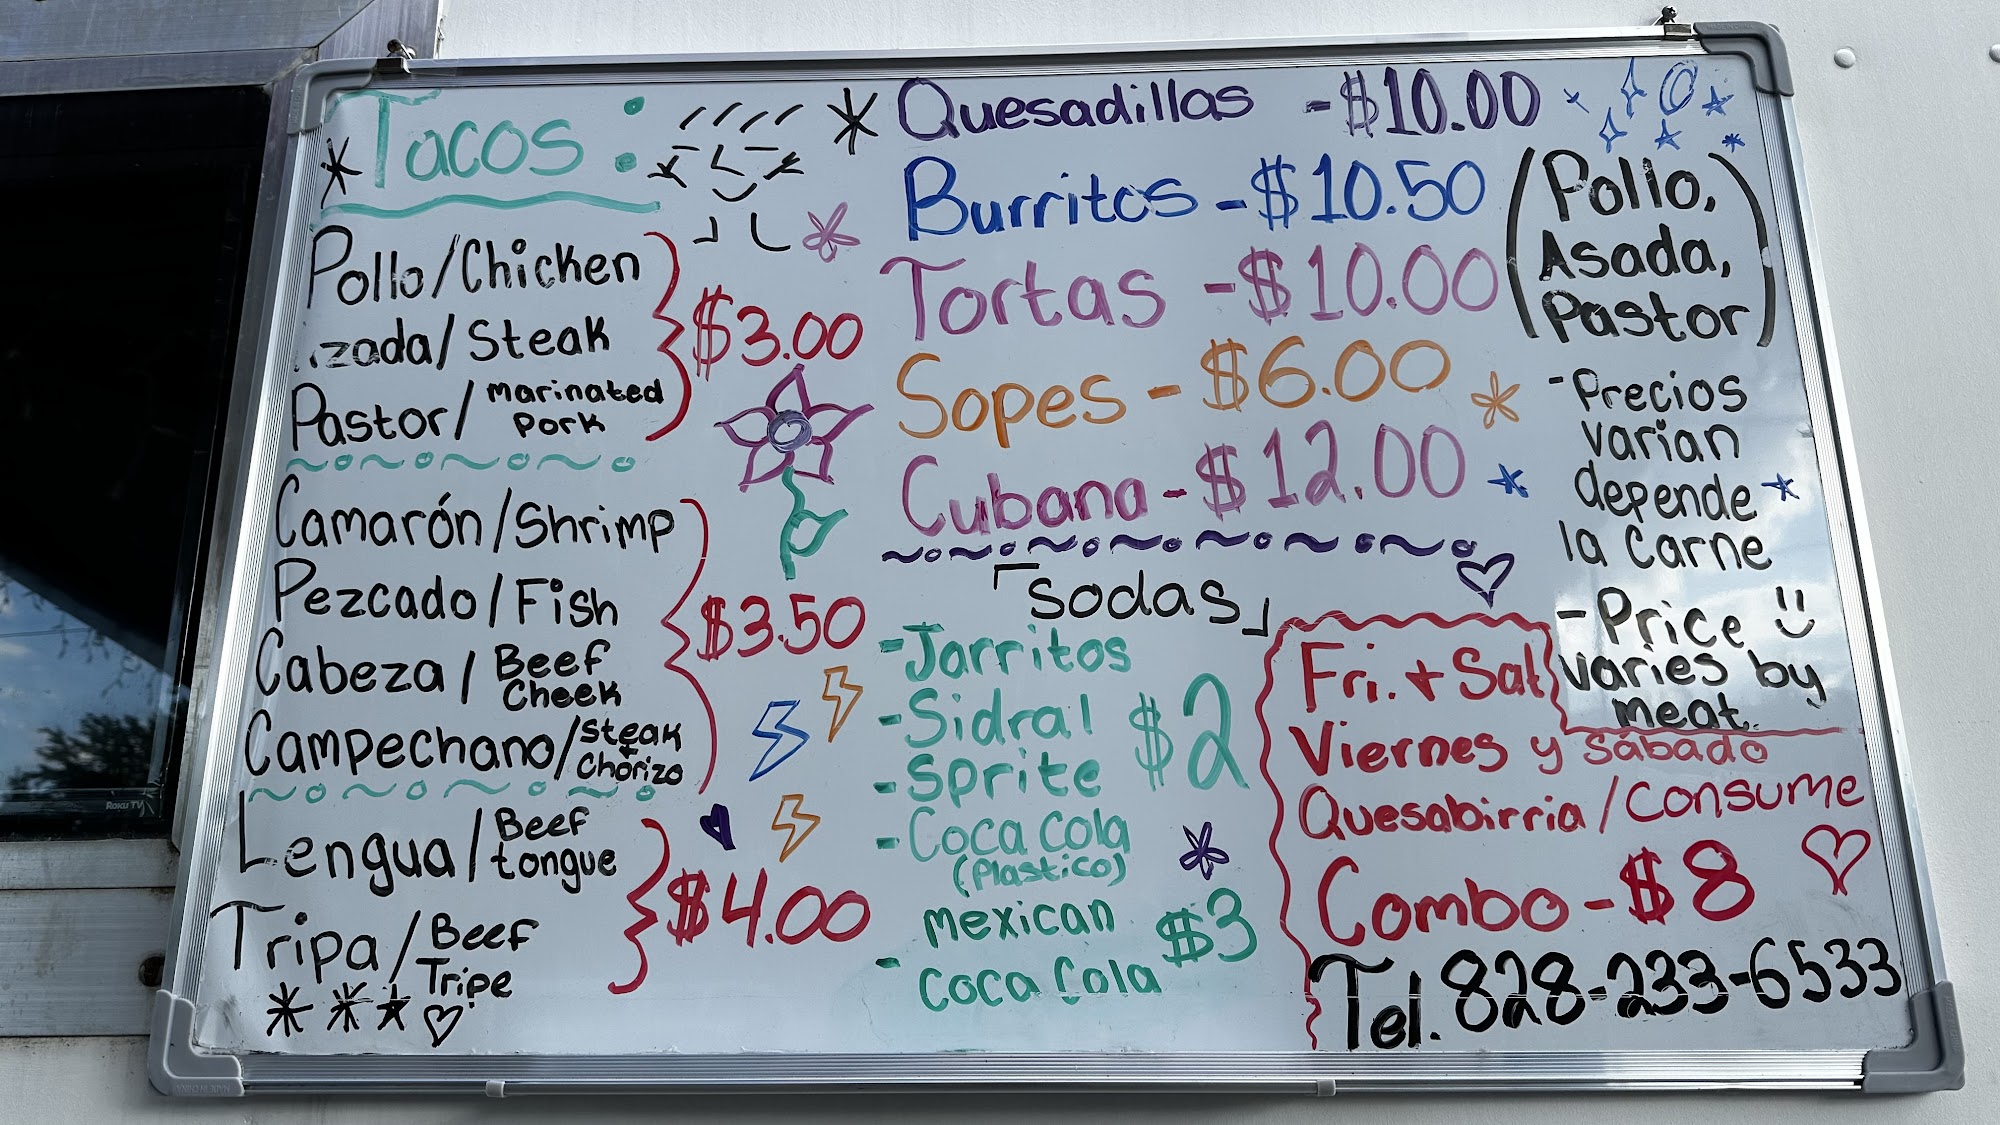 Tacos:
Pollo/Chicken
zada/Steak
$3.00
Pastor/Marinated Pork
Camarón/Shrimp
Pezcado/Fish
$3.50
Cabeza/Beef Cheek
Campechano/Steak + Chorizo
Lengua/Beef tongue
$4.00
Tripa/Beef Tripe
Quesadillas - $10.00
Burritos - $10.50
Tortas - $10.00
(Pollo,
Asada,
Pastor)
Sopes - $6.00
Cubana - $12.00
- Precios
varian
depende
la Carne
- Price
varies by
meat.
Sodas
- Jarritos
- Sidral
$2
- Sprite
- Coca Cola
(Plastico)
- mexican
coca Cola
$3
Fri. + Sat
Viernes y Sábado
Quesabirria/Consume
Combo - $8
Tel. 828-233-6533
Roku TV